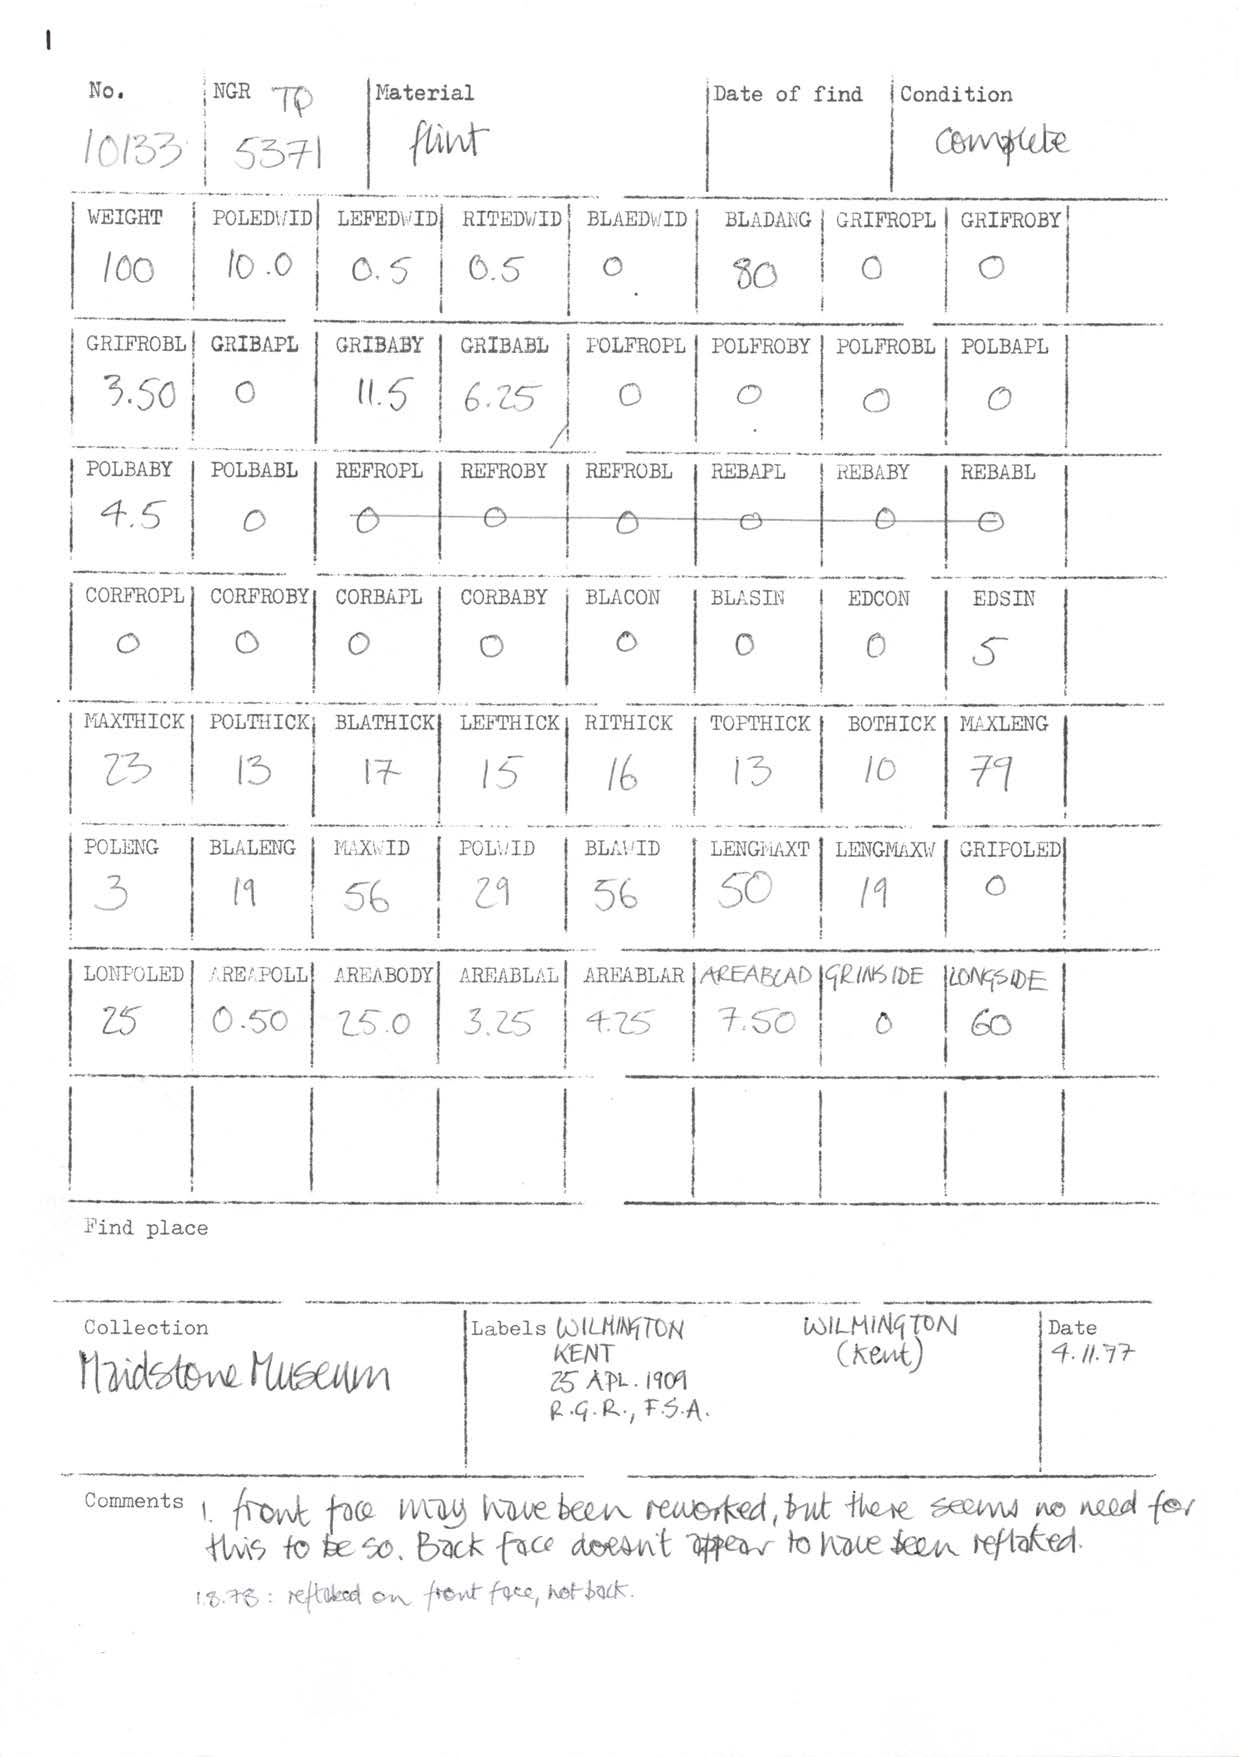 1
No. NGR TQ Material Date of find Condition
10133 5371 flint complete
WEIGHT POLEDWID LEFEDWID RITEDWID BLAEDWID BLADANG GRIFROPL GRIFROBY
100 10.0 0.5 0.5 0 80 0 0
GRIFROBL GRIBAPL GRIBABY GRIBABL POLFROPL POLFROBY POLFROBL POLBAPL
3.50 0 11.5 6.25 0 0 0 0
POLBABY POLBABL REFROPL REFROBY REFROBL REBAPL REBABY REBABL
4.5 0 0 0 0 0 0 0
CORFROPL CORFROBY CORBAPL CORBABY BLACON BLASIN EDCON EDSIN
0 0 0 0 0 0 0 5
MAXTHICK POLTHICK BLATHICK LEFTHICK RITHICK TOPTHICK BOTHICK MAXLENG
23 13 17 15 16 13 10 79
POLENG BLALENG MAXWID POLWID BLAWID LENGMAXT LENGMAXW GRIPOLED
3 19 56 29 56 50 19 0
LONPOLED AREAPOLL AREABODY AREABLAL AREABLAR AREABLAD GRINSIDE LONGSIDE
25 0.50 25.0 3.25 4.25 7.50 0 60
Find place
Collection Labels WILMINGTON WILMINGTON Date
Maidstone Museum KENT (Kent) 4.11.77
25 APL. 1909
R.G.R., F.S.A.
Comments 1. front face may have been reworked, but there seems no need for
this to be so. Back face doesn't appear to have been reflaked.
1.8.78: reflaked on front face, not back.